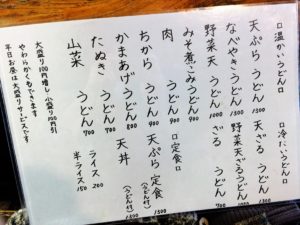 □温かいうどん□
天ぷらうどん 1300
なべやきうどん 1500
野菜天うどん 1000
みそ煮こみうどん 900
肉うどん 900
ちからうどん 900
かまあげうどん 800
たぬきうどん 700
山菜うどん 700
□冷たいうどん□
天ざるうどん 1300
野菜天ざるうどん
ざるうどん
□定食□
天ぷら定食 (うどん付) 1500
天丼 (うどん付) 1300
ライス 200
半ライス 150
大盛り100円増し 小盛り100円引
やわらかくもできます
平日お昼は大盛りサービスです